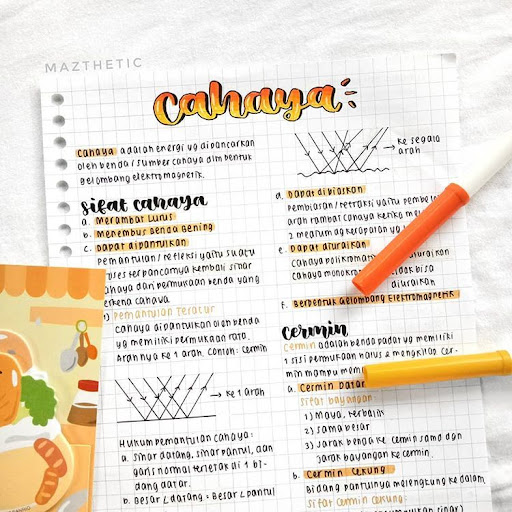 MAZTHETIC
cahaya
cahaya adalah energi yg dipancarkan
oleh benda / sumber cahaya dlm bentuk
gelombang elektromagnetik.
sifat cahaya
a. Merambat Lurus
b. Menembus Benda Bening
c. Dapat dipantulkan
pemantulan / refleksi yaitu suatu
proses terpancarnya kembali sinar
cahaya dari permukaan benda yang
terkena cahaya
Pemantulan Teratur
cahaya dipantulkan oleh benda
yg memiliki permukaan rata.
Arahnya ke 1 arah. Contoh: cermin
→ ke 1 arah
Hukum pemantulan cahaya:
a. Sinar datang, sinar pantul, dan
garis normal terletak di 1 bi-
dang datar.
b. Besar ∠ datang = Besar ∠ pantul
→ ke segala
arah
d. Dapat dibiaskan
pembiasan / refraksi yaitu
arah rambat cahaya ketika
2 medium yg kerapatan
e. Dapat diuraikan
cahaya polikromatik diuraikan
cahaya bisa
diuraikan
f. Berbentuk Gelombang Elektromagnetik
cermin
cermin adalah benda padat yg memiliki
1 sisi permukaan halus & mengkilap. cer-
min mampu
a. Cermin Datar
Sifat bayangan:
1) Maya, terbalik
2) sama besar
3) Jarak benda ke cermin sama dg
jarak bayangan ke cermin.
b. Cermin Cekung
Bidang pantulnya melengkung ke dalam.
Sifat Cermin Cekung: